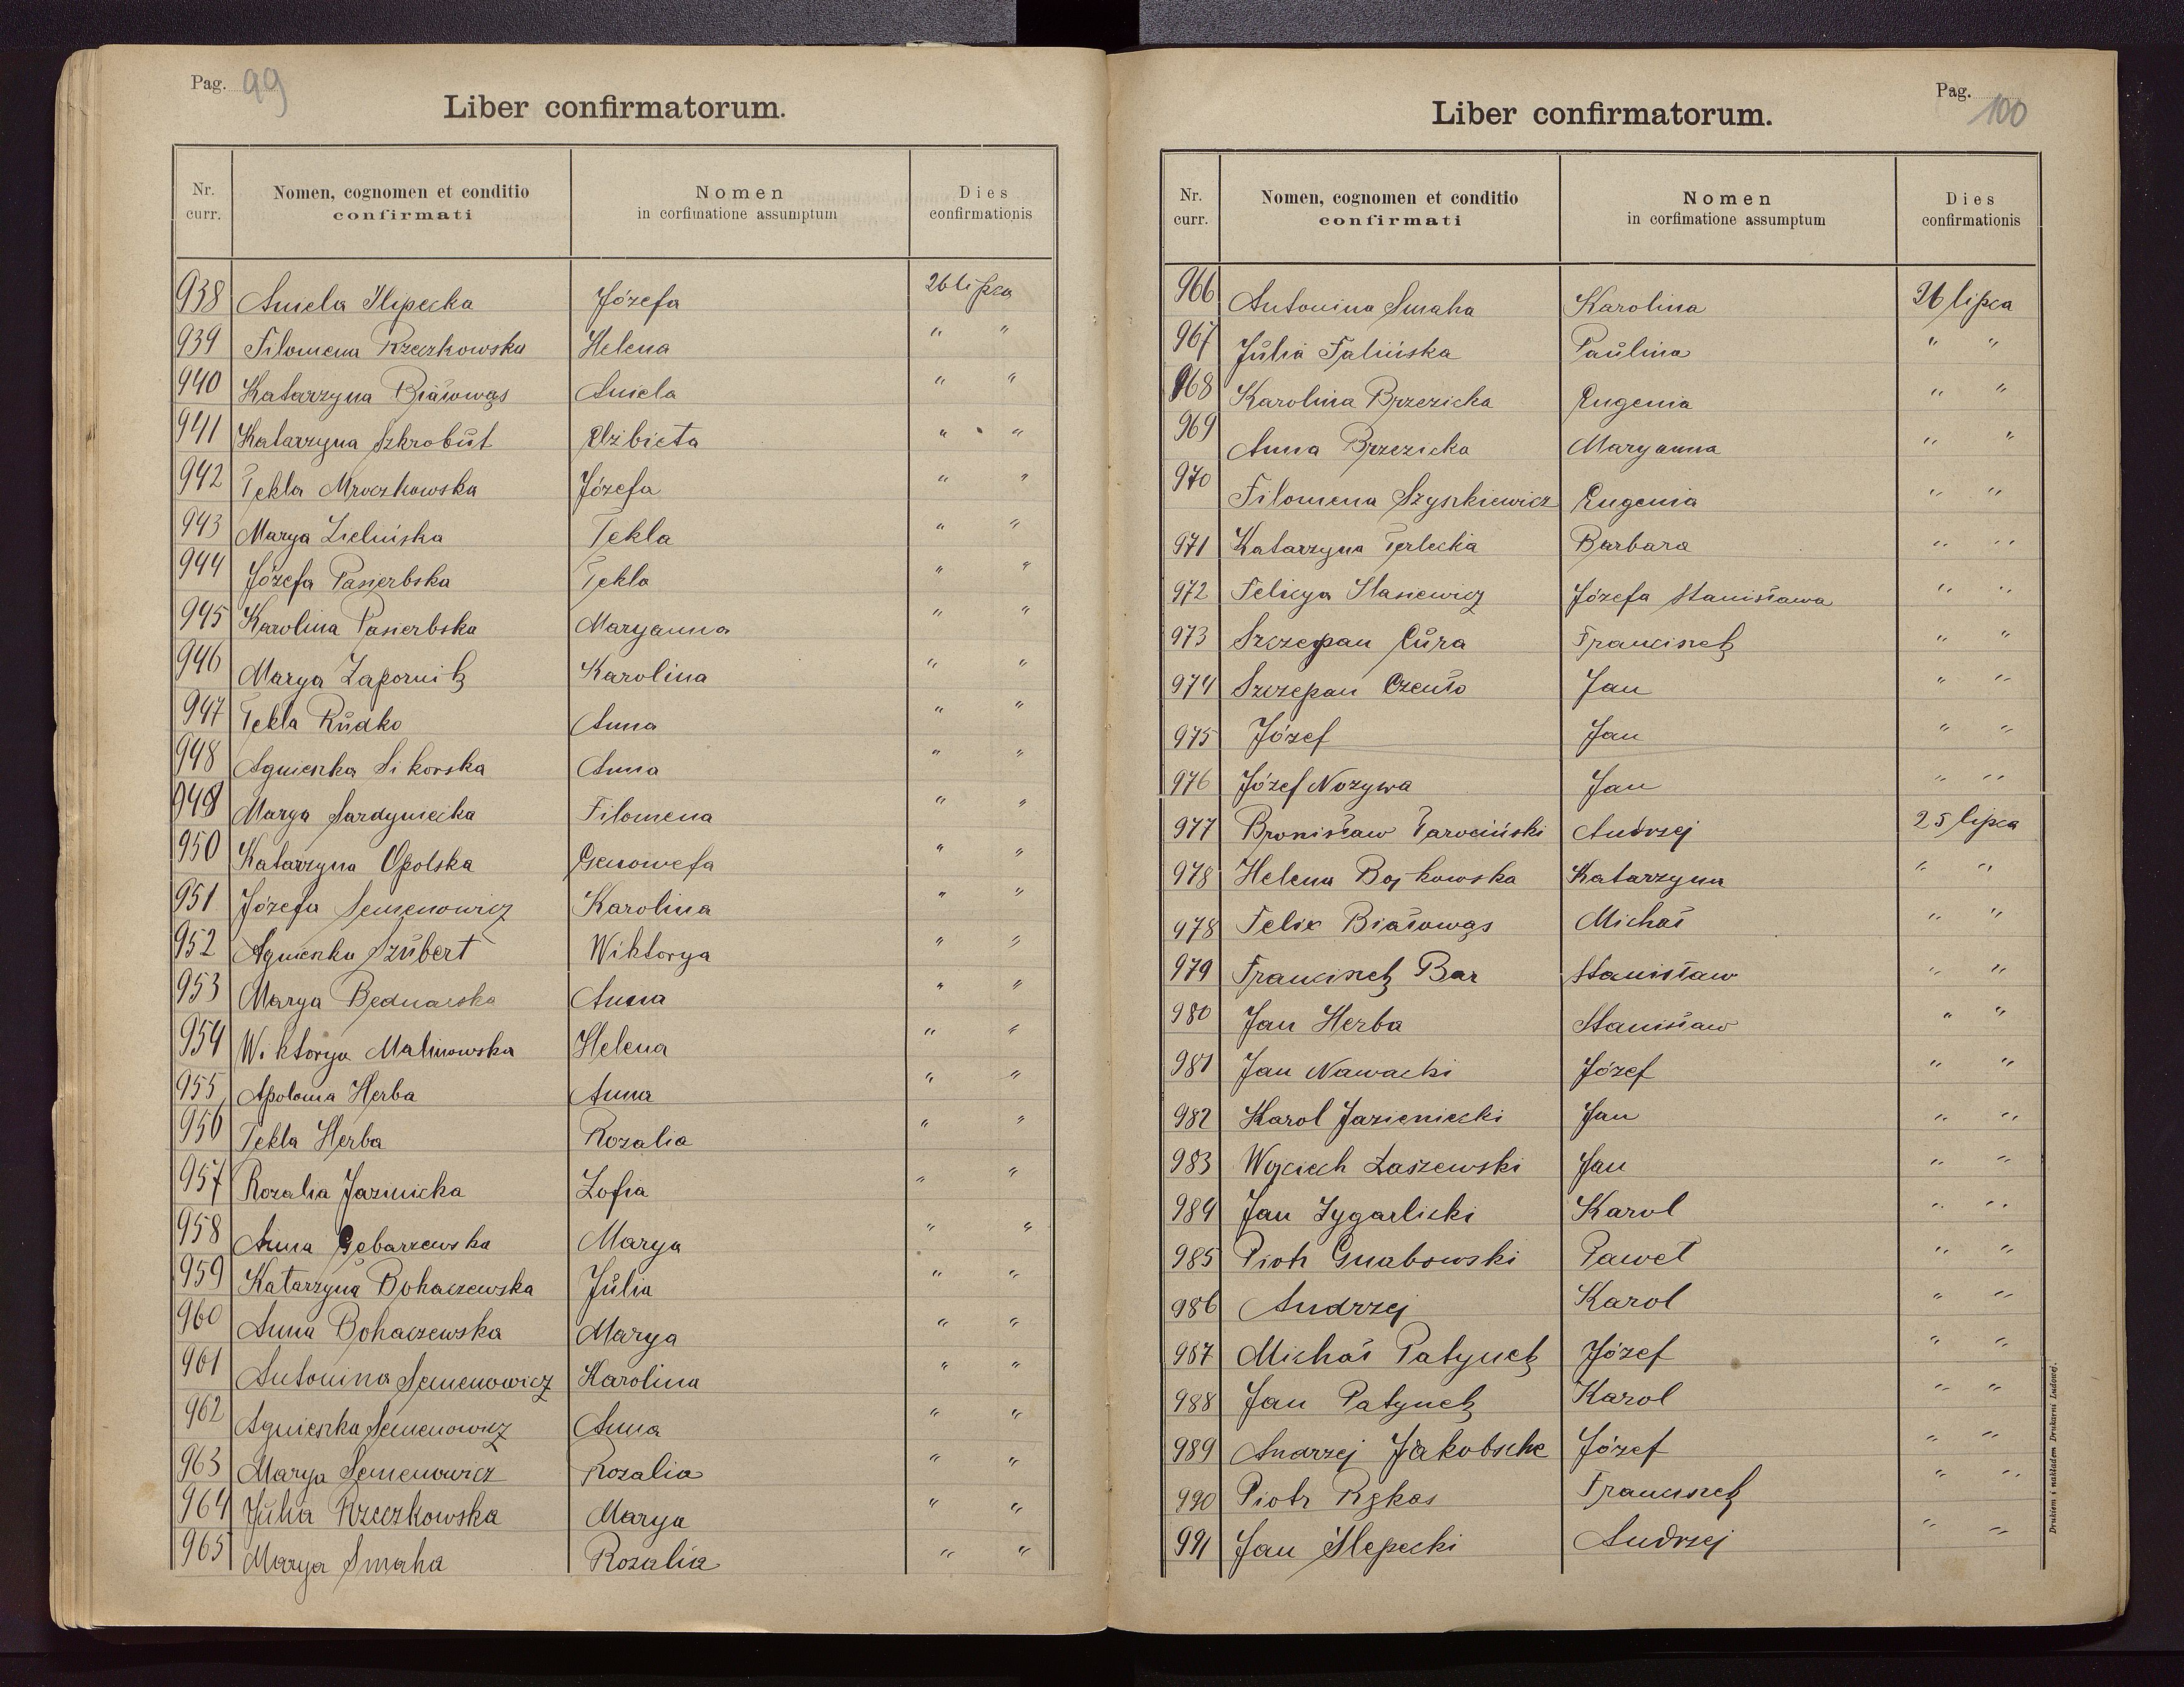 Pag. 99
Liber confirmatorum.
Nr. curr. Nomen, cognomen et conditio confirmati Nomen in corfimatione assumptum Dies confirmationis
938 Aniela Ślepecka Józefa 26 lipca
939 Filomena Rzeczkowska Helena " "
940 Katarzyna Białowąs Aniela " "
941 Katarzyna Szkrobut Elżbieta " "
942 Tekla Mroczkowska Józefa " "
943 Marya Zielińska Tekla " "
944 Józefa Pasierbska Tekla " "
945 Karolina Pasierbska Maryanna " "
946 Marya Zapornik Karolina " "
947 Tekla Rudko Anna " "
948 Agnieszka Sikorska Anna " "
949 Marya Sardyniecka Filomena " "
950 Katarzyna Opolska Genowefa " "
951 Józefa Semenowicz Karolina " "
952 Agnieszka Szubert Wiktorya " "
953 Marya Bednarska Anna " "
954 Wiktorya Malinowska Helena " "
955 Apolonia Herba Anna " "
956 Tekla Herba Rozalia " "
957 Rozalia Jaznicka Zofia " "
958 Anna Gębarzewska Marya " "
959 Katarzyna Bohaczewska Julia " "
960 Anna Bohaczewska Marya " "
961 Antonina Semenowicz Karolina " "
962 Agnieszka Semenowicz Anna " "
963 Marya Semenowicz Rozalia " "
964 Julia Rzeczkowska Marya " "
965 Marya Smaha Rozalia " "
Pag. 100
Liber confirmatorum.
Nr. curr. Nomen, cognomen et conditio confirmati Nomen in corfimatione assumptum Dies confirmationis
966 Antonina Smaha Karolina 26 lipca
967 Julia Falińska Paulina " "
968 Karolina Brzezicka Eugenia " "
969 Anna Brzezicka Maryanna " "
970 Filomena Szyszkiewicz Eugenia " "
971 Katarzyna Terlecka Barbara " "
972 Felicya Stasiewicz Józefa Stanisława " "
973 Szczepan Cura Franciszek " "
974 Szczepan Czesło Jan " "
975 Józef Jan " "
976 Józef Nozywa Jan " "
977 Bronisław Tarociński Andrzej 25 lipca
978 Helena Bojkowska Katarzyna " "
978 Felix Białowąs Michał " "
979 Franciszek Bar Stanisław " "
980 Jan Herba Stanisław " "
981 Jan Nawacki Józef " "
982 Karol Jazieniecki Jan " "
983 Wojciech Łaszewski Jan " "
984 Jan Zygarlicki Karol " "
985 Piotr Gnabowski Paweł " "
986 Andrzej Karol " "
987 Michał Patynek Józef " "
988 Jan Patynek Karol " "
989 Andrzej Jakobsche Józef " "
990 Piotr Rękas Franciszek " "
991 Jan Ślepecki Andrzej " "
Drukiem i nakładem Drukarni Ludowej.